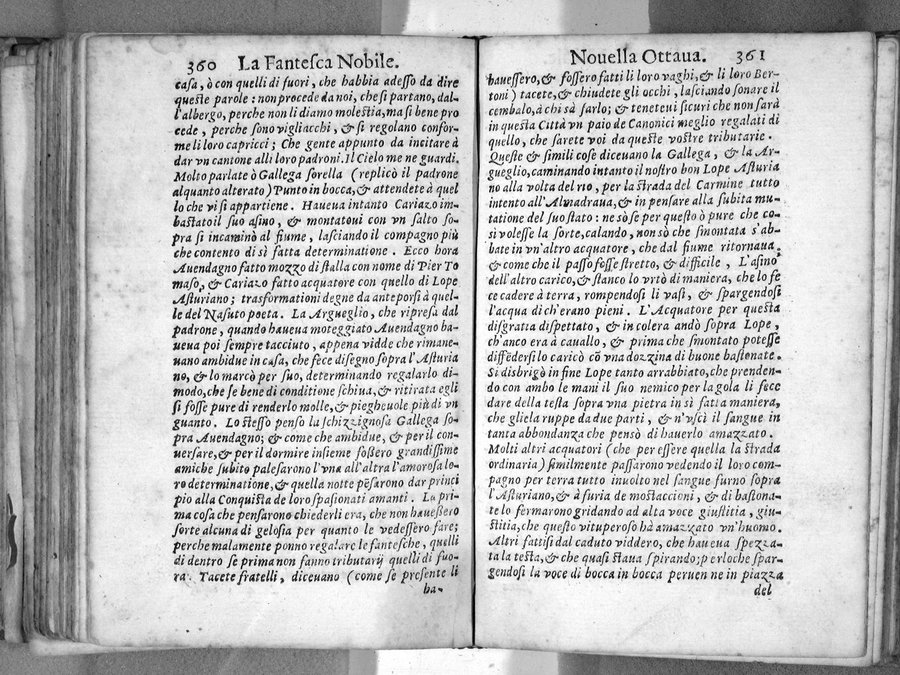 360 La Fantesca Nobile.
casa, ò con quelli di fuori, che habbia adesso da dire
queste parole: non procede da noi, che si partano, dal-
l'albergo, perche non li diamo molestia, ma si bene pro
cede, perche sono vigliacchi, & si regolano confor-
me li loro capricci; Che gente appunto da incitare à
dar vn cantone alli loro padroni. Il Cielo me ne guardi.
Molto parlate ò Gallega sorella (replicò il padrone
alquanto alterato) Punto in bocca, & attendete à quel
lo che vi si appartiene. Haueua intanto Cariazo im-
bastato il suo asino, & montatoui con vn salto so-
pra si incaminò al fiume, lasciando il compagno più
che contento di sì fatta determinatione. Ecco hora
Auendagno fatto mozzo di stalla con nome di Pier To
maso, & Cariazo fatto acquatore con quello di Lope
Asturiano; trasformationi degne da anteporsi à quel-
le del Nasuto poeta. La Argueglio, che ripresa dal
padrone, quando haueua moteggiato Auendagno ha-
ueua poi sempre tacciuto, appena vidde che rimane-
uano ambidue in casa, che fece disegno sopra l'Asturia
no, & lo marcò per suo, determinando regalarlo di-
modo, che se bene di conditione schiua, & ritirata egli
si fosse pure di renderlo molle, & piegheuole più di vn
guanto. Lo stesso penso la schizzignosa Gallega so-
pra Auendagno; & come che ambidue, & per il con-
uersare, & per il dormire insieme fossero grandissime
amiche subito palesarono l'vna all'altra l'amorosa lo-
ro determinatione, & quella notte pēsarono dar princi
pio alla Conquista de loro spasionati amanti. La pri-
ma cosa che pensarono chiederli era, che non hauessero
sorte alcuna di gelosia per quanto le vedessero fare;
perche malamente ponno regalare le fantesche, quelli
di dentro se prima non fanno tributarij quelli di fuo-
ra. Tacete fratelli, diceuano (come se presente li
ha-
Nouella Ottaua. 361
hauessero, & fossero fatti li loro vaghi, & li loro Ber-
toni) tacete, & chiudete gli occhi, lasciando sonare il
cembalo, à chi sà farlo; & teneteui sicuri che non sarà
in questa Città vn paio de Canonici meglio regalati di
quello, che sarete voi da queste vostre tributarie.
Queste & simili cose diceuano la Gallega, & la Ar-
gueglio, caminando intanto il nostro bon Lope Asturia
no alla volta del rio, per la strada del Carmine tutto
intento all'Almadraua, & in pensare alla subita mu-
tatione del suo stato: ne sò se per questo ò pure che co-
sì volesse la sorte, calando, non sò che smontata s'ab-
batè in vn'altro acquatore, che dal fiume ritornaua,
& come che il passo fosse stretto, & difficile, L'asino
dell'altro carico, & stanco lo vrtò di maniera, che lo fe
ce cadere à terra, rompendosi li vasi, & spargendosi
l'acqua di ch'erano pieni. L'Acquatore per questa
disgratia dispettato, & in colera andò sopra Lope,
ch'anco era à cauallo, & prima che smontato potesse
diffēdersi lo caricò cō vna dozzina di buone bastonate.
Si disbrigò in fine Lope tanto arrabbiato, che prenden-
do con ambo le mani il suo nemico per la gola li fece
dare della testa sopra vna pietra in si fatta maniera,
che gliela ruppe da due parti, & n'vscì il sangue in
tanta abbondanza che pensò di hauerlo amazzato.
Molti altri acquatori (che per essere quella la strada
ordinaria) similmente passarono vedendo il loro com-
pagno per terra tutto inuolto nel sangue furno sopra
l'Asturiano, & à furia de mostaccioni, & di bastona-
te lo fermarono gridando ad alta voce giustitia, giu-
stitia, che questo vituperoso hà amazzato vn'huomo.
Altri fattisi dal caduto viddero, che haueua spezza-
ta la testa, & che quasi staua spirando; perloche spar-
gendosi la voce di bocca in bocca peruenne in piazza
del